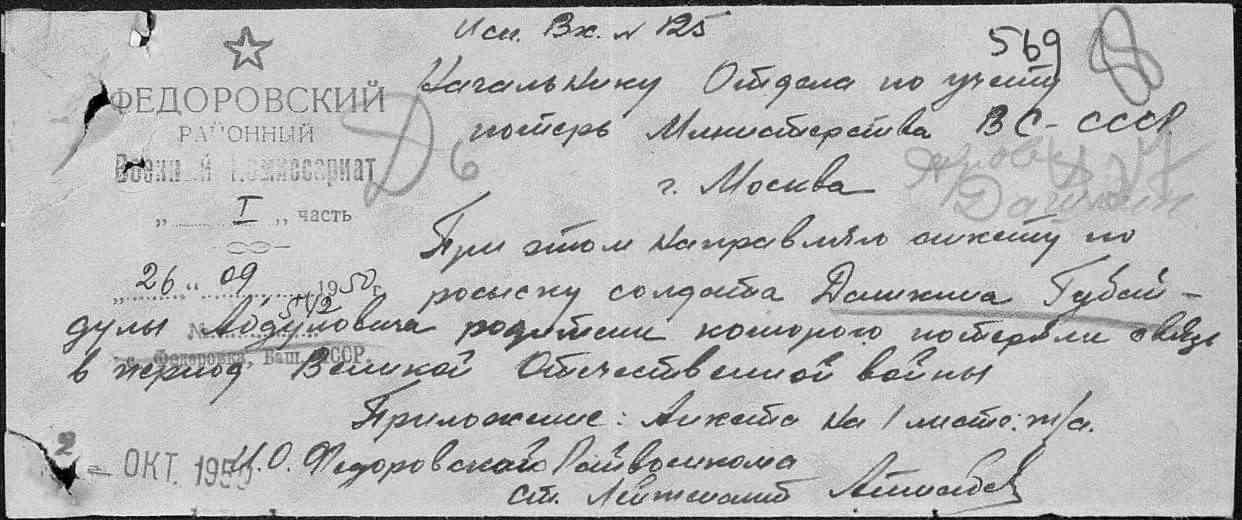 Исп. Вх. № 125
569
8
ФЕДОРОВСКИЙ
РАЙОННЫЙ
Военный Комиссариат
„ I „ часть
„ 26 „ 09 1950 г.
№
с. Федоровка, Баш. АССР.
Начальнику Отдела по учету
потерь Министерства ВС-СССР
г. Москва
Дашкин
При этом направляю анкету по
розыску солдата Дашкина Губай-
дулы Абдуловича родители которого потеряли связь
в период Великой Отечественной войны
Приложение: Анкета на 1 листе: т/а.
И.О. Федоровского Райвоенкома
ст. Лейтенант
2 - ОКТ. 1950